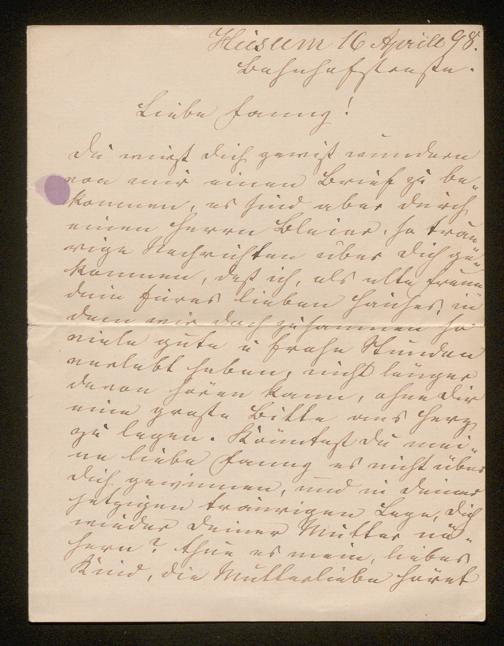 Husum 16 Aprill 98.
Bahnhofstraße.
Liebe Fanny!
Du wirst Dich gewiß wundern
von mir einen Brief zu be-
kommen, es sind aber durch
einen Herrn Bleier, so trau-
rige Nachrichten über Dich ge-
kommen, daß ich, als alte Freun
din Eures lieben Hauses, in
dem wir doch zusammen so
viele gute u frohe Stunden
verlebt haben, nicht länger
davon hören kann, ohne Dir
eine große Bitte ans Herz
zu legen. Könntest Du mei-
ne liebe Fanny es nicht über
Dich gewinnen, und in Deiner
jetzigen traurigen Lage, Dich
wieder Deiner Mutter nä-
hern? Thue es mein, liebes
Kind, die Mutterliebe höret